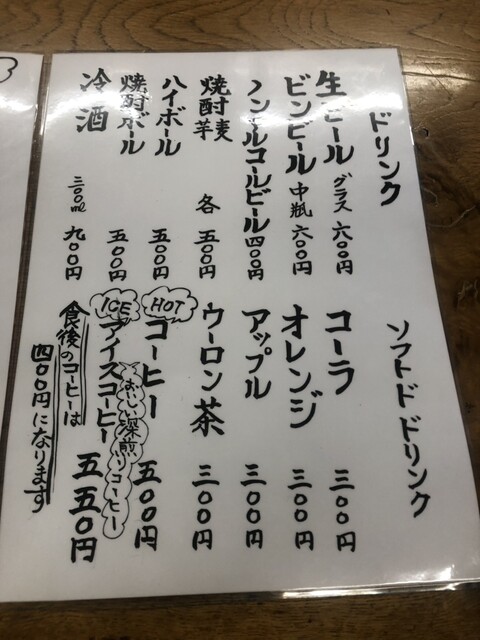 ドリンク
生ビール グラス 六〇〇円
ビンビール 中瓶 六〇〇円
ノンアルコールビール 四〇〇円
焼酎 麦 芋 各 五〇〇円
ハイボール 五〇〇円
焼酎ボール 五〇〇円
冷酒 三〇〇ml 九〇〇円
ソフトドドリンク
コーラ 三〇〇円
オレンジ 三〇〇円
アップル 三〇〇円
ウーロン茶 三〇〇円
HOT コーヒー 五〇〇円
おいしい深煎りコーヒー
ICE アイスコーヒー 五五〇円
食後のコーヒーは
四〇〇円になります